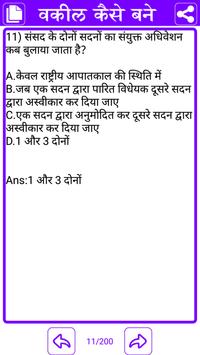 वकील कैसे बने
11) संसद के दोनों सदनों का संयुक्त अधिवेशन
कब बुलाया जाता है?
A.केवल राष्ट्रीय आपातकाल की स्थिति में
B.जब एक सदन द्वारा पारित विधेयक दूसरे सदन
द्वारा अस्वीकार कर दिया जाए
C.एक सदन द्वारा अनुमोदित कर दूसरे सदन द्वारा
अस्वीकार कर दिया जाए
D.1 और 3 दोनों
Ans:1 और 3 दोनों
11/200